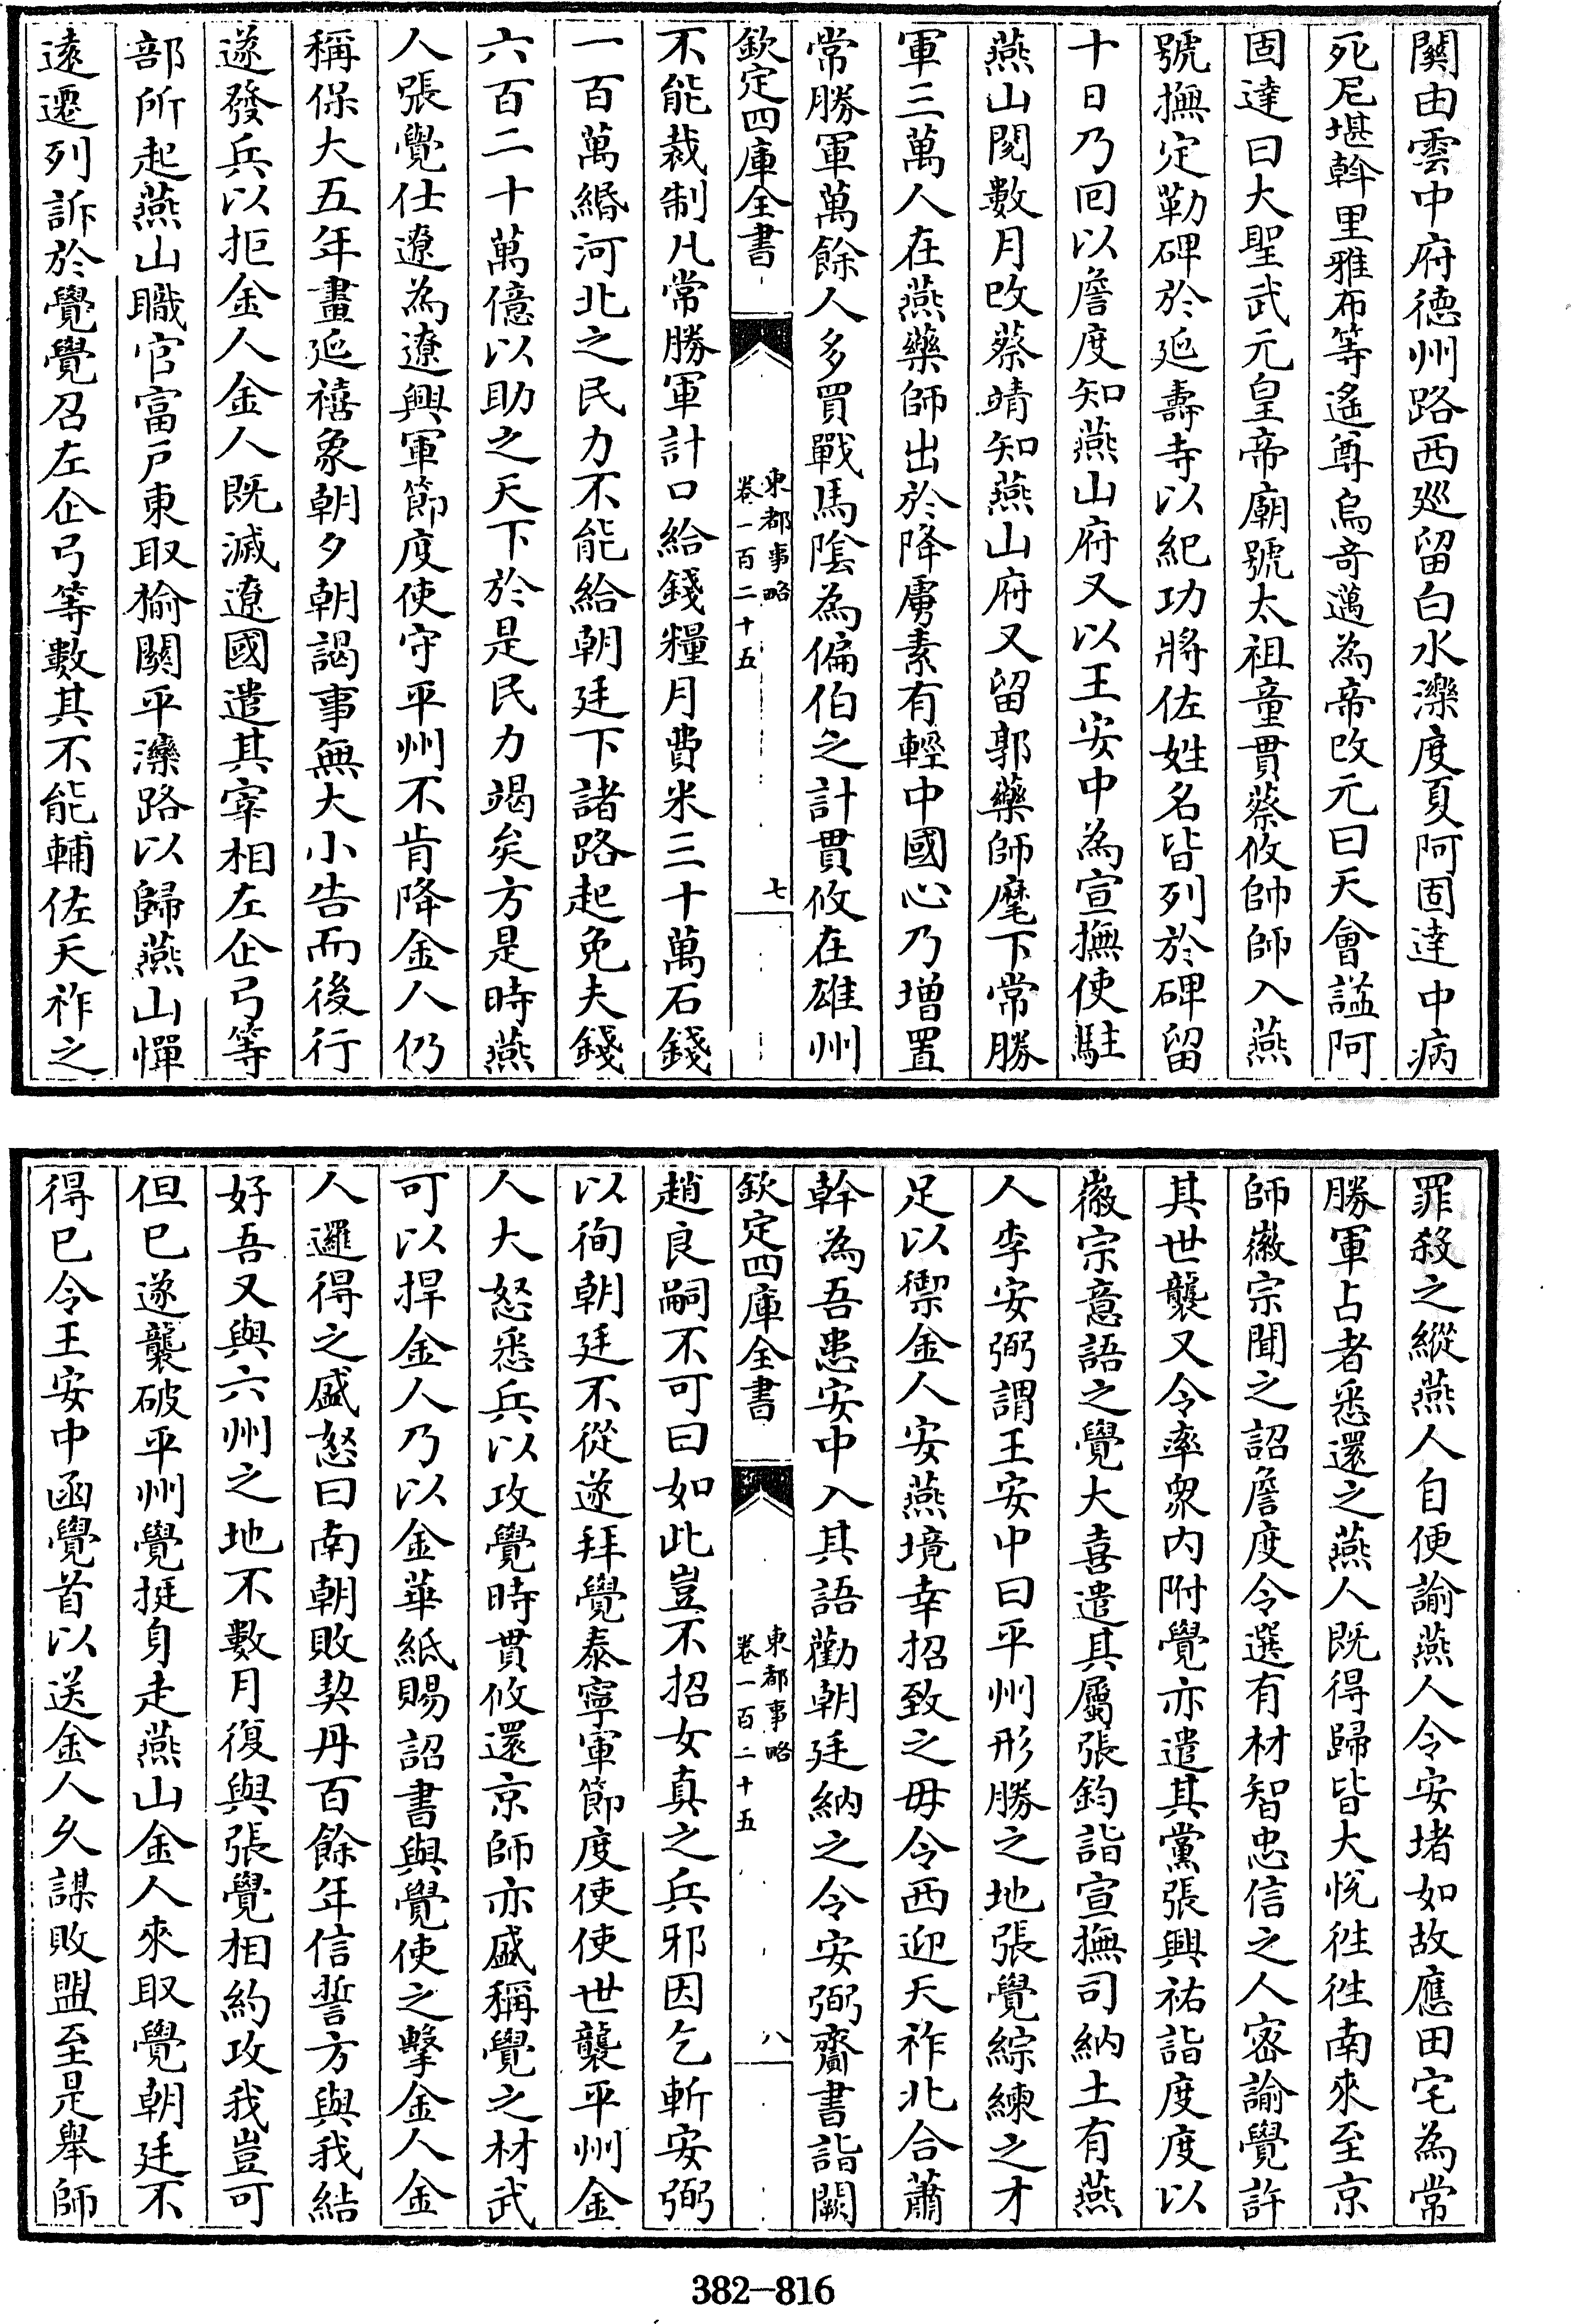 關由雲中府德州路西巡留白水濼度夏阿固達中病
死尼堪斡里雅布等遙尊烏竒邁為帝改元曰天會諡阿
固達曰大聖武元皇帝廟號太祖童貫蔡攸帥師入燕
號撫定勒碑於延壽寺以紀功將佐姓名皆列於碑留
十日乃回以詹度知燕山府又以王安中為宣撫使駐
燕山閱數月改蔡靖知燕山府又留郭藥師麾下常勝
軍三萬人在燕藥師出於降虜素有輕中國心乃增置
常勝軍萬餘人多買戰馬陰為偏伯之計貫攸在雄州
欽定四庫全書
東都事略
卷一百二十五
七
不能裁制凡常勝軍計口給錢糧月費米三十萬石錢
一百萬緡河北之民力不能給朝廷下諸路起免夫錢
六百二十萬億以助之天下於是民力竭矣方是時燕
人張覺仕遼為遼興軍節度使守平州不肯降金人仍
稱保大五年畫延禧象朝夕朝謁事無大小告而後行
遂發兵以拒金人金人既滅遼國遣其宰相左企弓等
部所起燕山職官富户東取榆關平灤路以歸燕山憚
遠遷列訴於覺覺召左企弓等數其不能輔佐天祚之
罪殺之縱燕人自便諭燕人令安堵如故應田宅為常
勝軍占者悉還之燕人既得歸皆大悅徃徃南來至京
師徽宗聞之詔詹度令選有材智忠信之人密諭覺許
其世襲又令率衆内附覺亦遣其黨張興祐詣度度以
徽宗意語之覺大喜遣其屬張鈞詣宣撫司納土有燕
人李安弼謂王安中曰平州形勝之地張覺綜練之才
足以禦金人安燕境幸招致之毋令西迎天祚北合蕭
幹為吾患安中入其語勸朝廷納之令安弼齎書詣闕
欽定四庫全書
東都事略
卷一百二十五
八
趙良嗣不可曰如此豈不招女真之兵邪因乞斬安弼
以徇朝廷不從遂拜覺泰寧軍節度使使世襲平州金
人大怒悉兵以攻覺時貫攸還京師亦盛稱覺之材武
可以捍金人乃以金華紙賜詔書與覺使之擊金人金
人邏得之盛怒曰南朝敗契丹百餘年信誓方與我結
好吾又與六州之地不數月復與張覺相約攻我豈可
但已遂襲破平州覺挺身走燕山金人來取覺朝廷不
得已令王安中函覺首以送金人久謀敗盟至是舉師
382-816